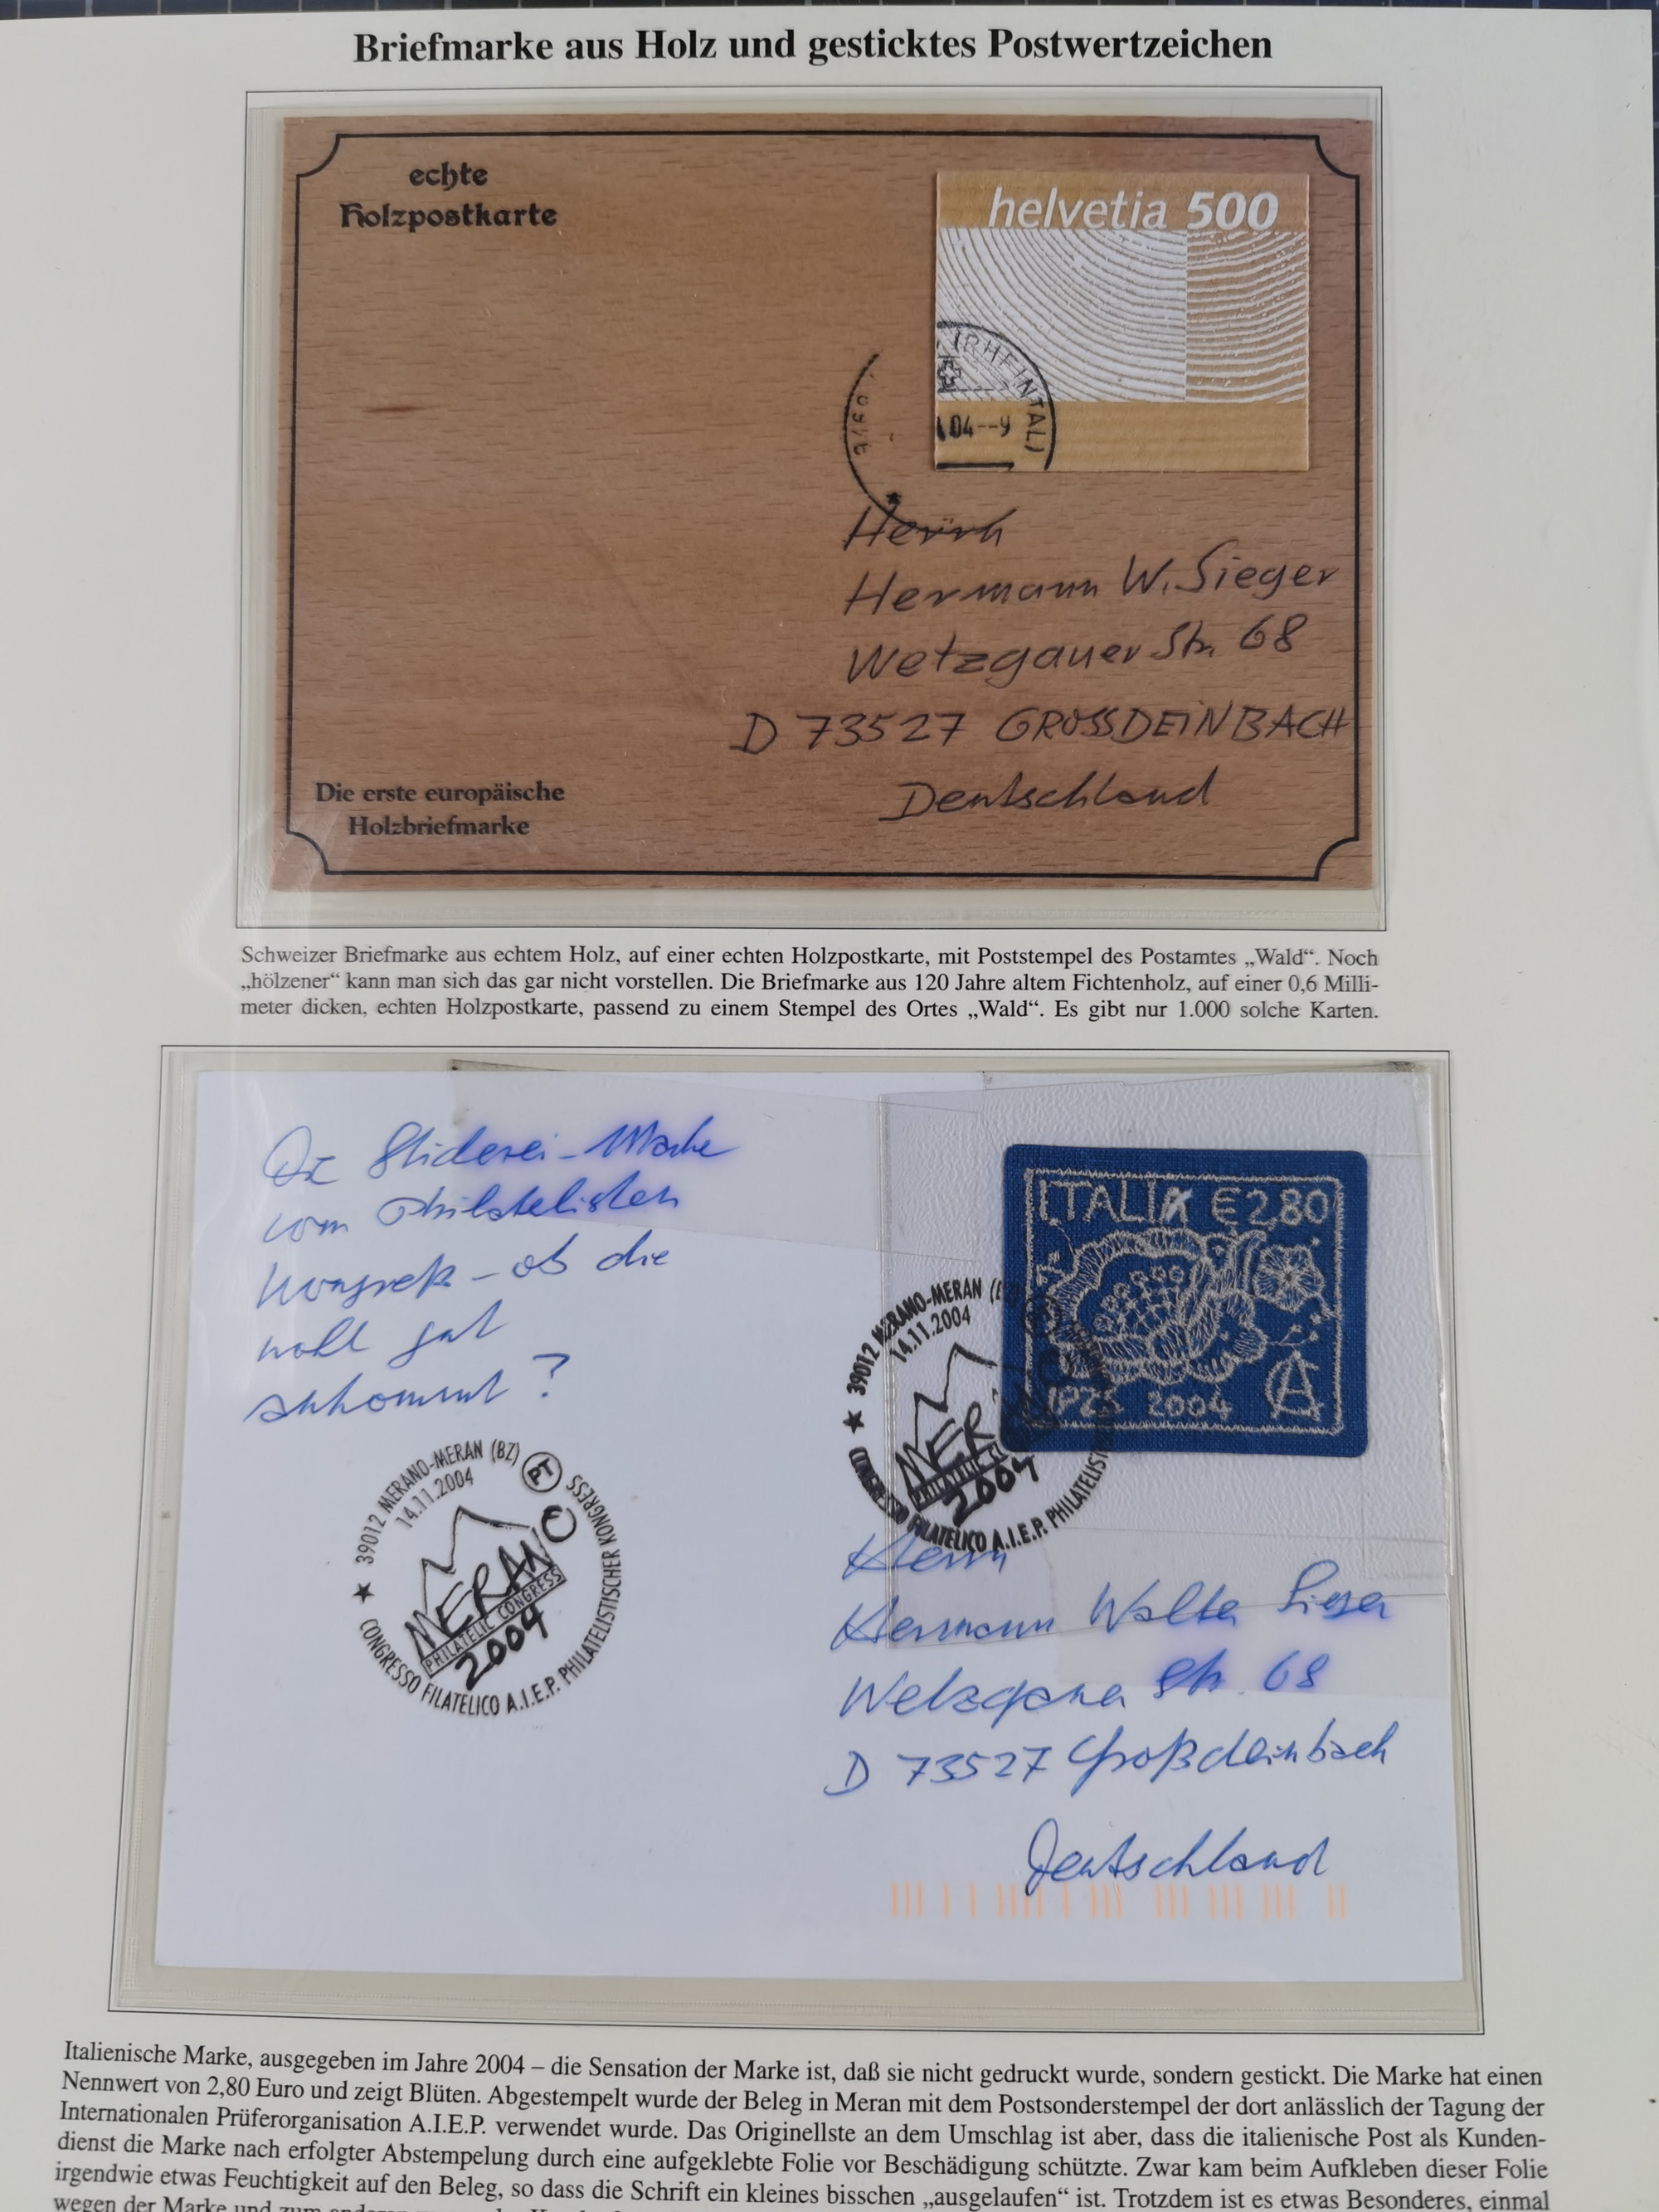 Briefmarke aus Holz und gesticktes Postwertzeichen
echte
Holzpostkarte
helvetia 500
(RHEINTAL)
04--9
Herrn
Hermann W. Sieger
Wetzgauer Str. 68
D 73527 GROSSDEINBACH
Deutschland
Die erste europäische
Holzbriefmarke
Schweizer Briefmarke aus echtem Holz, auf einer echten Holzpostkarte, mit Poststempel des Postamtes „Wald“. Noch
„hölzener“ kann man sich das gar nicht vorstellen. Die Briefmarke aus 120 Jahre altem Fichtenholz, auf einer 0,6 Milli-
meter dicken, echten Holzpostkarte, passend zu einem Stempel des Ortes „Wald“. Es gibt nur 1.000 solche Karten.
Stickerei-Marke
vom Philatelisten
Kongreß - ob die
wohl gut
ankommt?
ITALIA €2,80
IPZS 2004
39012 MERANO-MERAN (BZ)
14.11.2004
MER
PHILATELIC
2004
CONGRESSO FILATELICO A.I.E.P. PHILATELIST
39012 MERANO-MERAN (BZ)
PT
14.11.2004
MERANO
PHILATELIC CONGRESS
2004
CONGRESSO FILATELICO A.I.E.P. PHILATELISTISCHER KONGRESS
Herrn
Hermann Walter Sieger
Wetzgauer Str. 68
D 73527 Großdeinbach
Deutschland
Italienische Marke, ausgegeben im Jahre 2004 – die Sensation der Marke ist, daß sie nicht gedruckt wurde, sondern gestickt. Die Marke hat einen
Nennwert von 2,80 Euro und zeigt Blüten. Abgestempelt wurde der Beleg in Meran mit dem Postsonderstempel der dort anlässlich der Tagung der
Internationalen Prüferorganisation A.I.E.P. verwendet wurde. Das Originellste an dem Umschlag ist aber, dass die italienische Post als Kunden-
dienst die Marke nach erfolgter Abstempelung durch eine aufgeklebte Folie vor Beschädigung schützte. Zwar kam beim Aufkleben dieser Folie
irgendwie etwas Feuchtigkeit auf den Beleg, so dass die Schrift ein kleines bisschen „ausgelaufen“ ist. Trotzdem ist es etwas Besonderes, einmal
wegen der Marke und zum